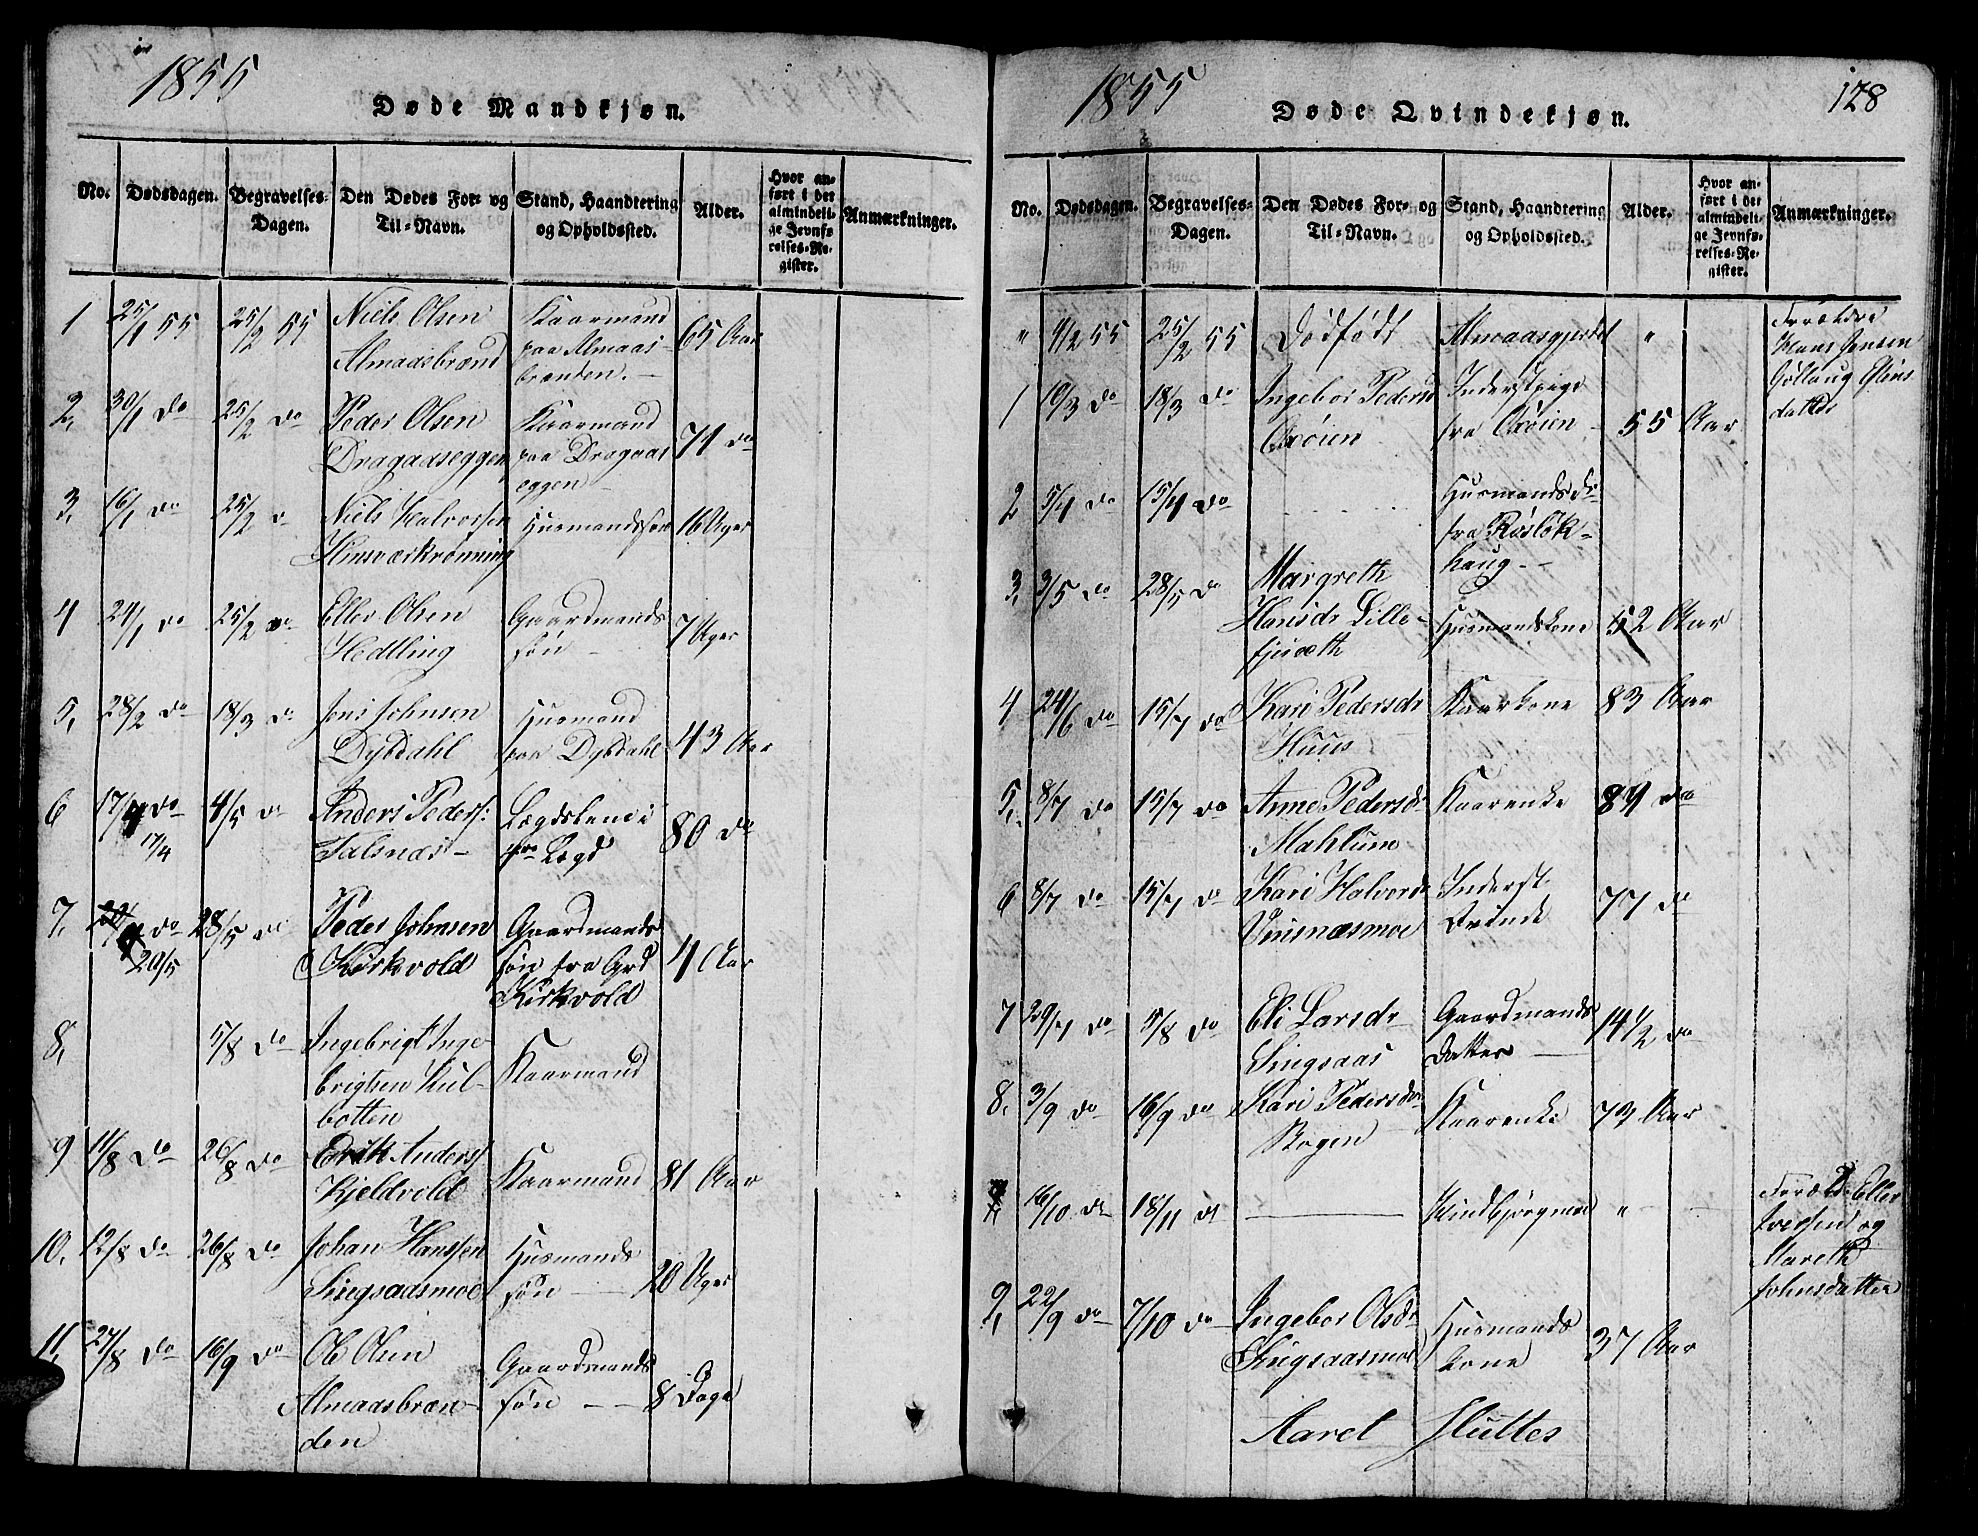 1855
Døde Mandkjøn.
No. Dødsdagen. Begravelses-Dagen. Den Dødes For- og Til-Navn. Stand, Haandtering og Opholdssted. Alder. Hvor anført i det almindelige Jevnførelses-Register. Anmærkninger.
1 25/1 55 25/2 55 Niels Olsen Kaarmand 65 Aar
Almaasbrænd paa Almaas-
brænden.
2, 30/1 do 25/2 do Peder Olsen Kaarmand 71 do
Dragaaseggen paa Dragaas
eggen
3, 16/1 do 25/2 do Niels Halvorsen Husmandssøn 16 Uger
Kinsværkrønning
4 24/1 do 25/2 do Eller Olsen Gaardmands 7 Uger
Hedling søn
5, 28/2 do 18/3 do Jens Johnsen Husmand 43 Aar
Dybdahl paa Dybdahl
6 17/4 do 4/5 do Anders Peders: Lægdslem i 80 do
17/4 Talsnæs Lægd
7, do 28/5 do Peder Johnsen Gaardmands 4 Aar
20/5 Kirkvold søn fra Grd
Kirkvold
8, 5/8 do Ingebrigt Inge- Kaarmand
brigtsen Kul-
botten
9 11/8 do 26/8 do Erik Anders: Kaarmand 81 Aar
Kjeldvold
10, 12/8 do 26/8 do Johan Hanssen Husmands 20 Uger
Singsaasmoe søn
11, 27/8 do 16/9 do Ole Olsen Gaardmands 8 Dage
Almaasbræn- søn
den
1855
128
Døde Qvindekjøn.
No. Dødsdagen. Begravelses-Dagen. Den Dødes For- og Til-Navn. Stand, Haandtering og Opholdssted. Alder. Hvor anført i det almindelige Jevnførelses-Register. Anmærkninger.
" 9/2 55 25/2 55 Dødfødt Almaasgjerdet " Forældre
Hans Jensen
Gollaug Estens
datter
1 10/3 do 18/3 do Ingebor Pedersd Inderstpige 55 Aar
Oxøien fra Oxøien
2 5/4 do 15/4 do Husmandsdr
fra Røsløk-
haug
3, 3/5 do 28/5 do Margreth
Hansdr Lille- Husmandskone 52 Aar
fjeræth
4 24/6 do 15/7 do Kari Pedersdr Kaarkone 83 Aar
Huus
5, 8/7 do 15/7 do Anne Pedersdr Kaarenke 84 do
Mahlum
6 8/7 do 15/7 do Kari Halvordr Inderst 77 do
Viinsnæsmoe Qvinde
7 29/7 do 5/8 do Eli Larsdr Gaardmands 14 1/2 do
Singsaas datter
8, 3/9 do 16/9 do Kari Pedersdr Kaarenke 73 Aar
Bogen
16/10 do 18/11 do Kindbjørgmoe " Foræld: Eller
Iversen og
Mareth
Johnsdatter
9, 22/9 do 7/10 do Ingebor Olsdr Husmands 37 Aar
Singsaasmoe kone
Aaret Sluttes